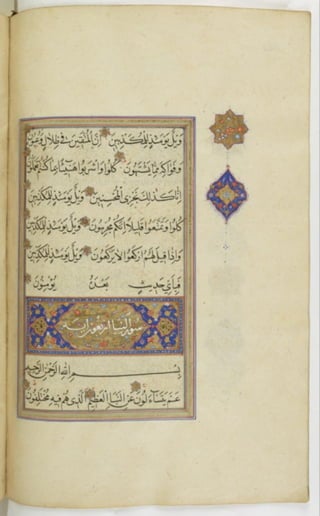 ويل يومئذ للمكذبين ان المتقين في ظلال وعيون
وفواكه مما يشتهون كلوا واشربوا هنيئا بما كنتم تعملون
انا كذلك نجزي المحسنين ويل يومئذ للمكذبين
كلوا وتمتعوا قليلا انكم مجرمون ويل يومئذ للمكذبين
واذا قيل لهم اركعوا لا يركعون ويل يومئذ للمكذبين
فباي حديث بعده يؤمنون
سورة النبا اربعون اية
بسم الله الرحمن الرحيم
عم يتساءلون عن النبا العظيم الذي هم فيه مختلفون